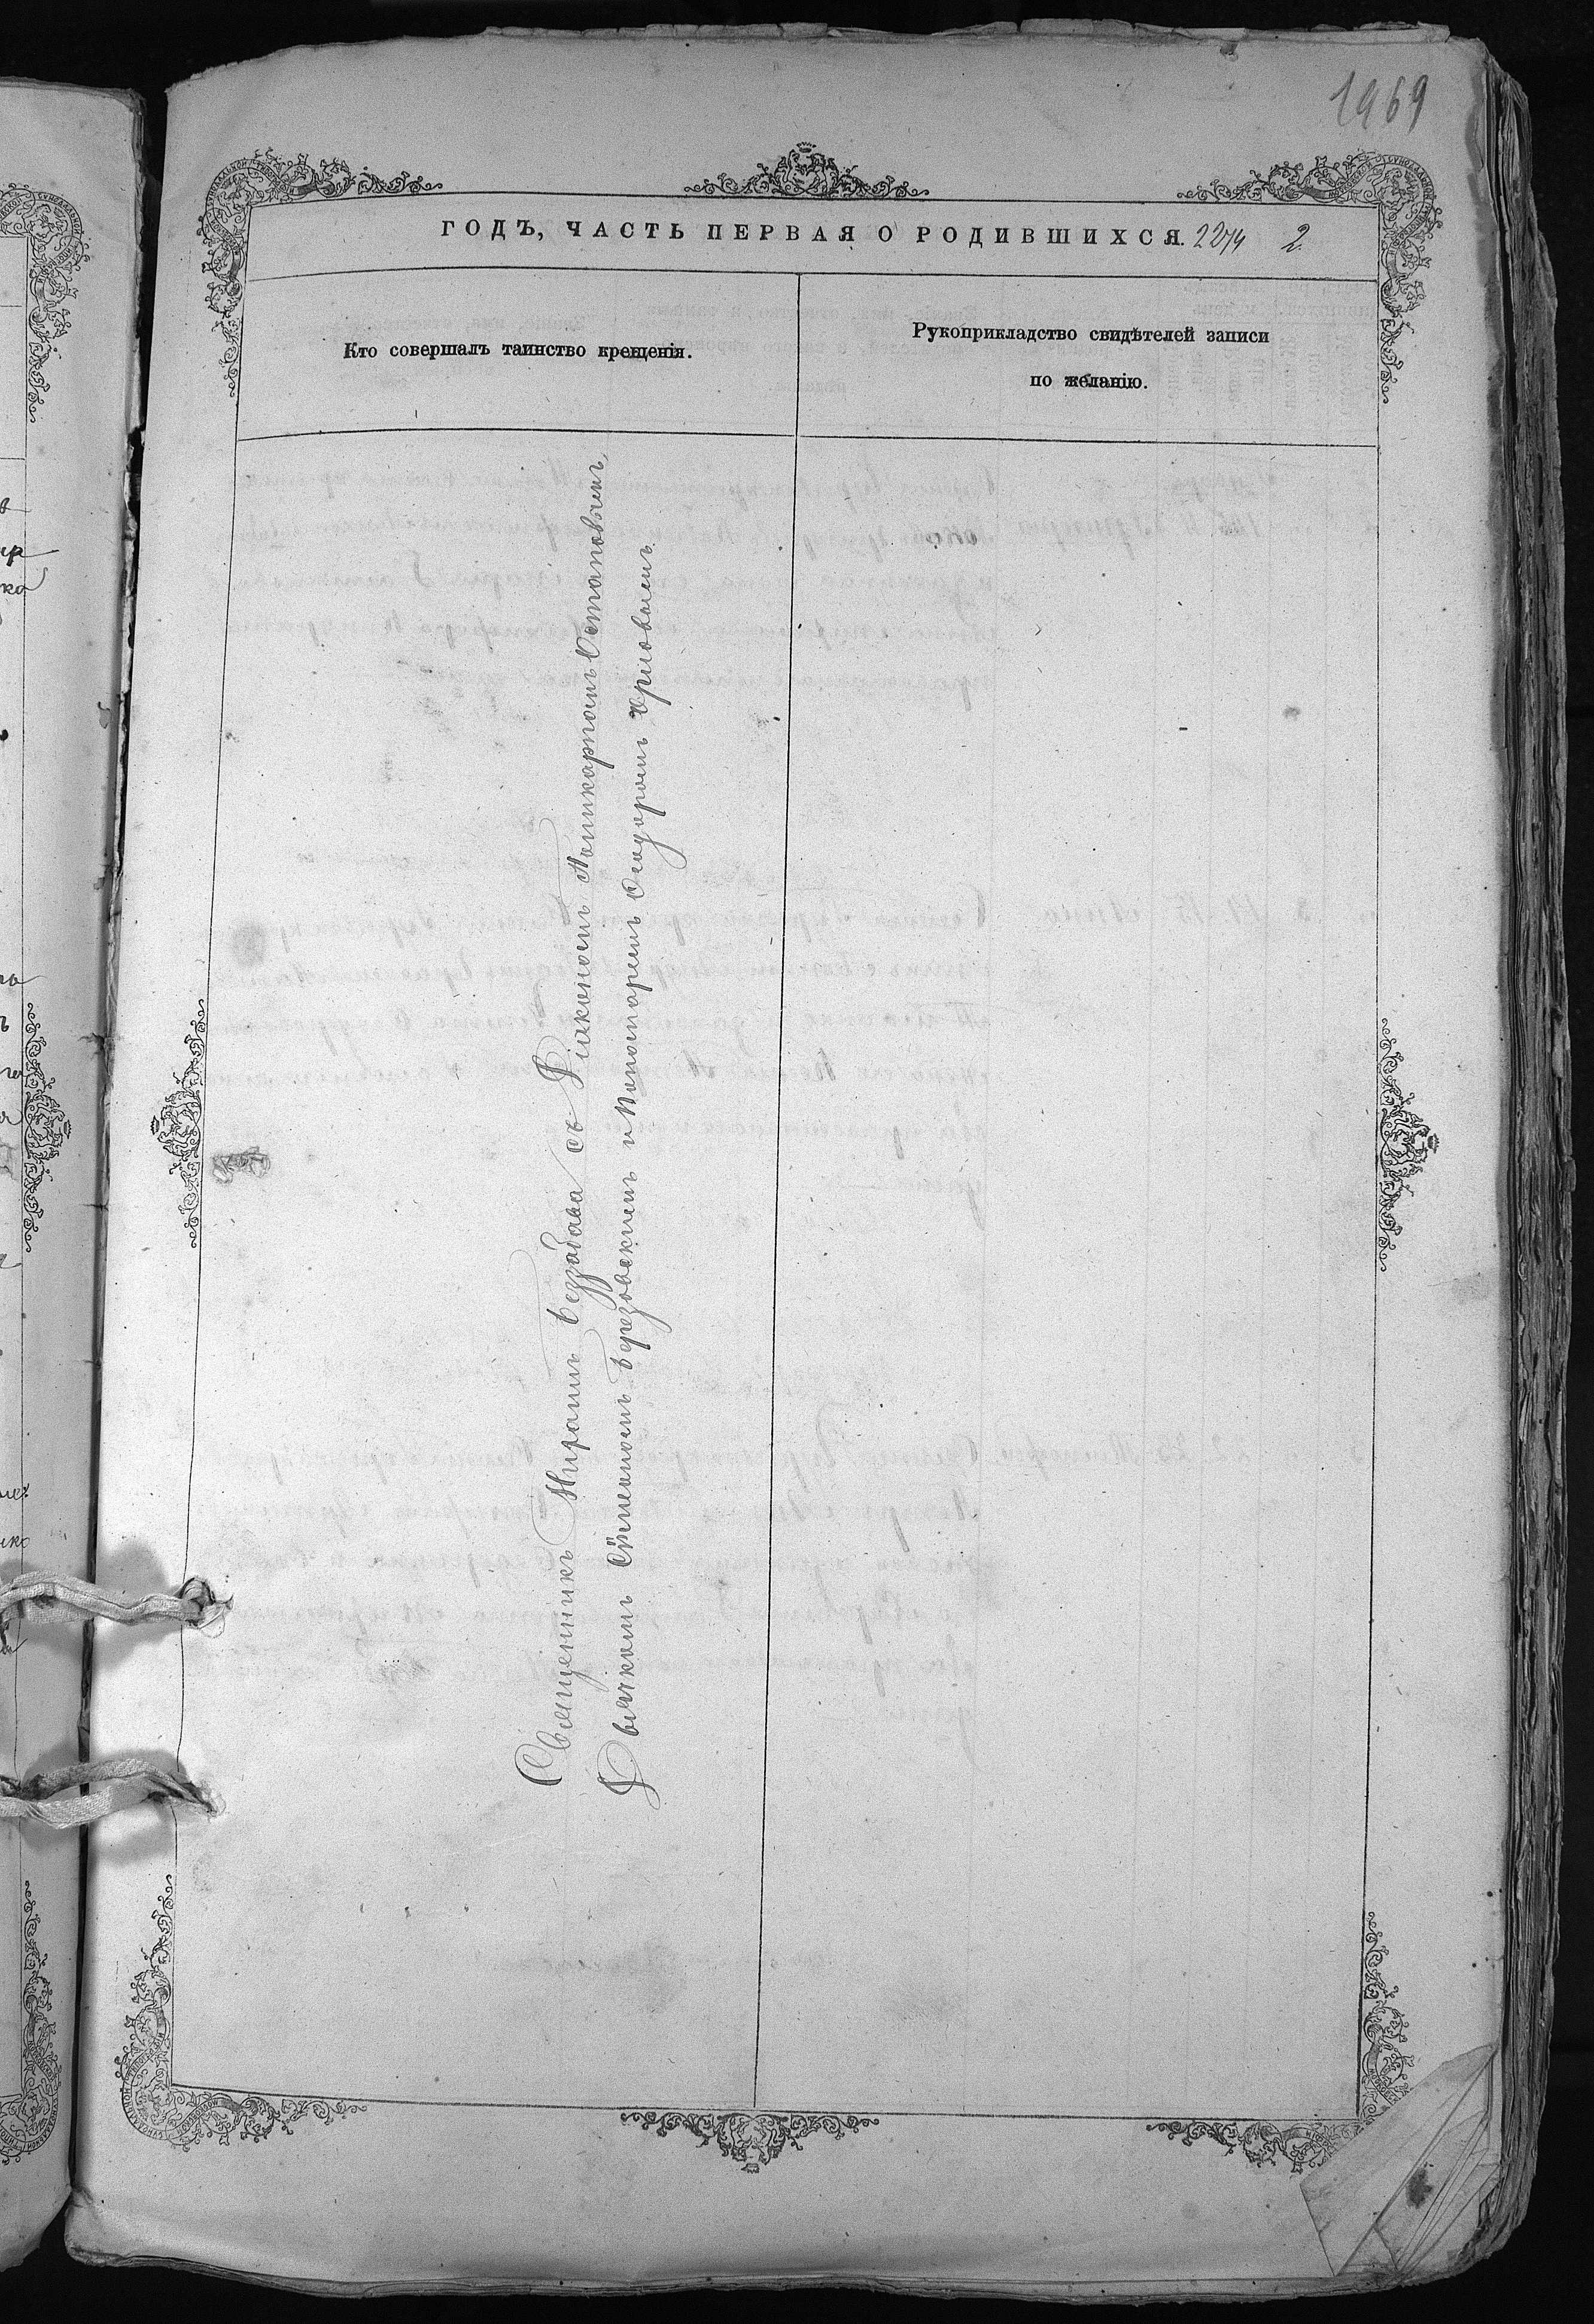 1969
ГОДЪ, ЧАСТЬ ПЕРВАЯ О РОДИВШИХСЯ. 2274 2
Кто совершалъ таинство крещенія.
Рукоприкладство свидѣтелей записи
по желанію.
Священникъ Беззабава съ Діакономъ Поликарпомъ Остаповымъ,
Дьячкомъ Сѵмеономъ Березовскимъ и Пономаремъ Ѳеодоромъ Орловымъ